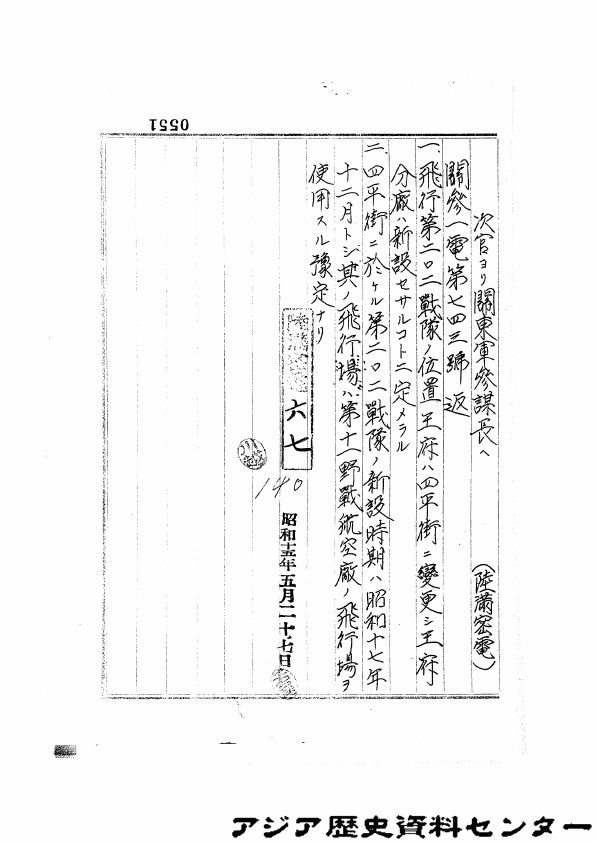 0551
次官ヨリ關東軍參謀長ヘ
(陸滿密電)
關參一電第七四三號返
一、飛行第二〇二戰隊ノ位置王府ハ四平街ニ變更シ王府
分廠ハ新設セサルコトニ定メラル
二、四平街ニ於ケル第二〇二戰隊ノ新設時期ハ昭和十七年
十二月トシ其ノ飛行場ハ第十一野戰航空廠ノ飛行場ヲ
使用スル豫定ナリ
六七
140
昭和十五年五月二十七日
アジア歴史資料センター